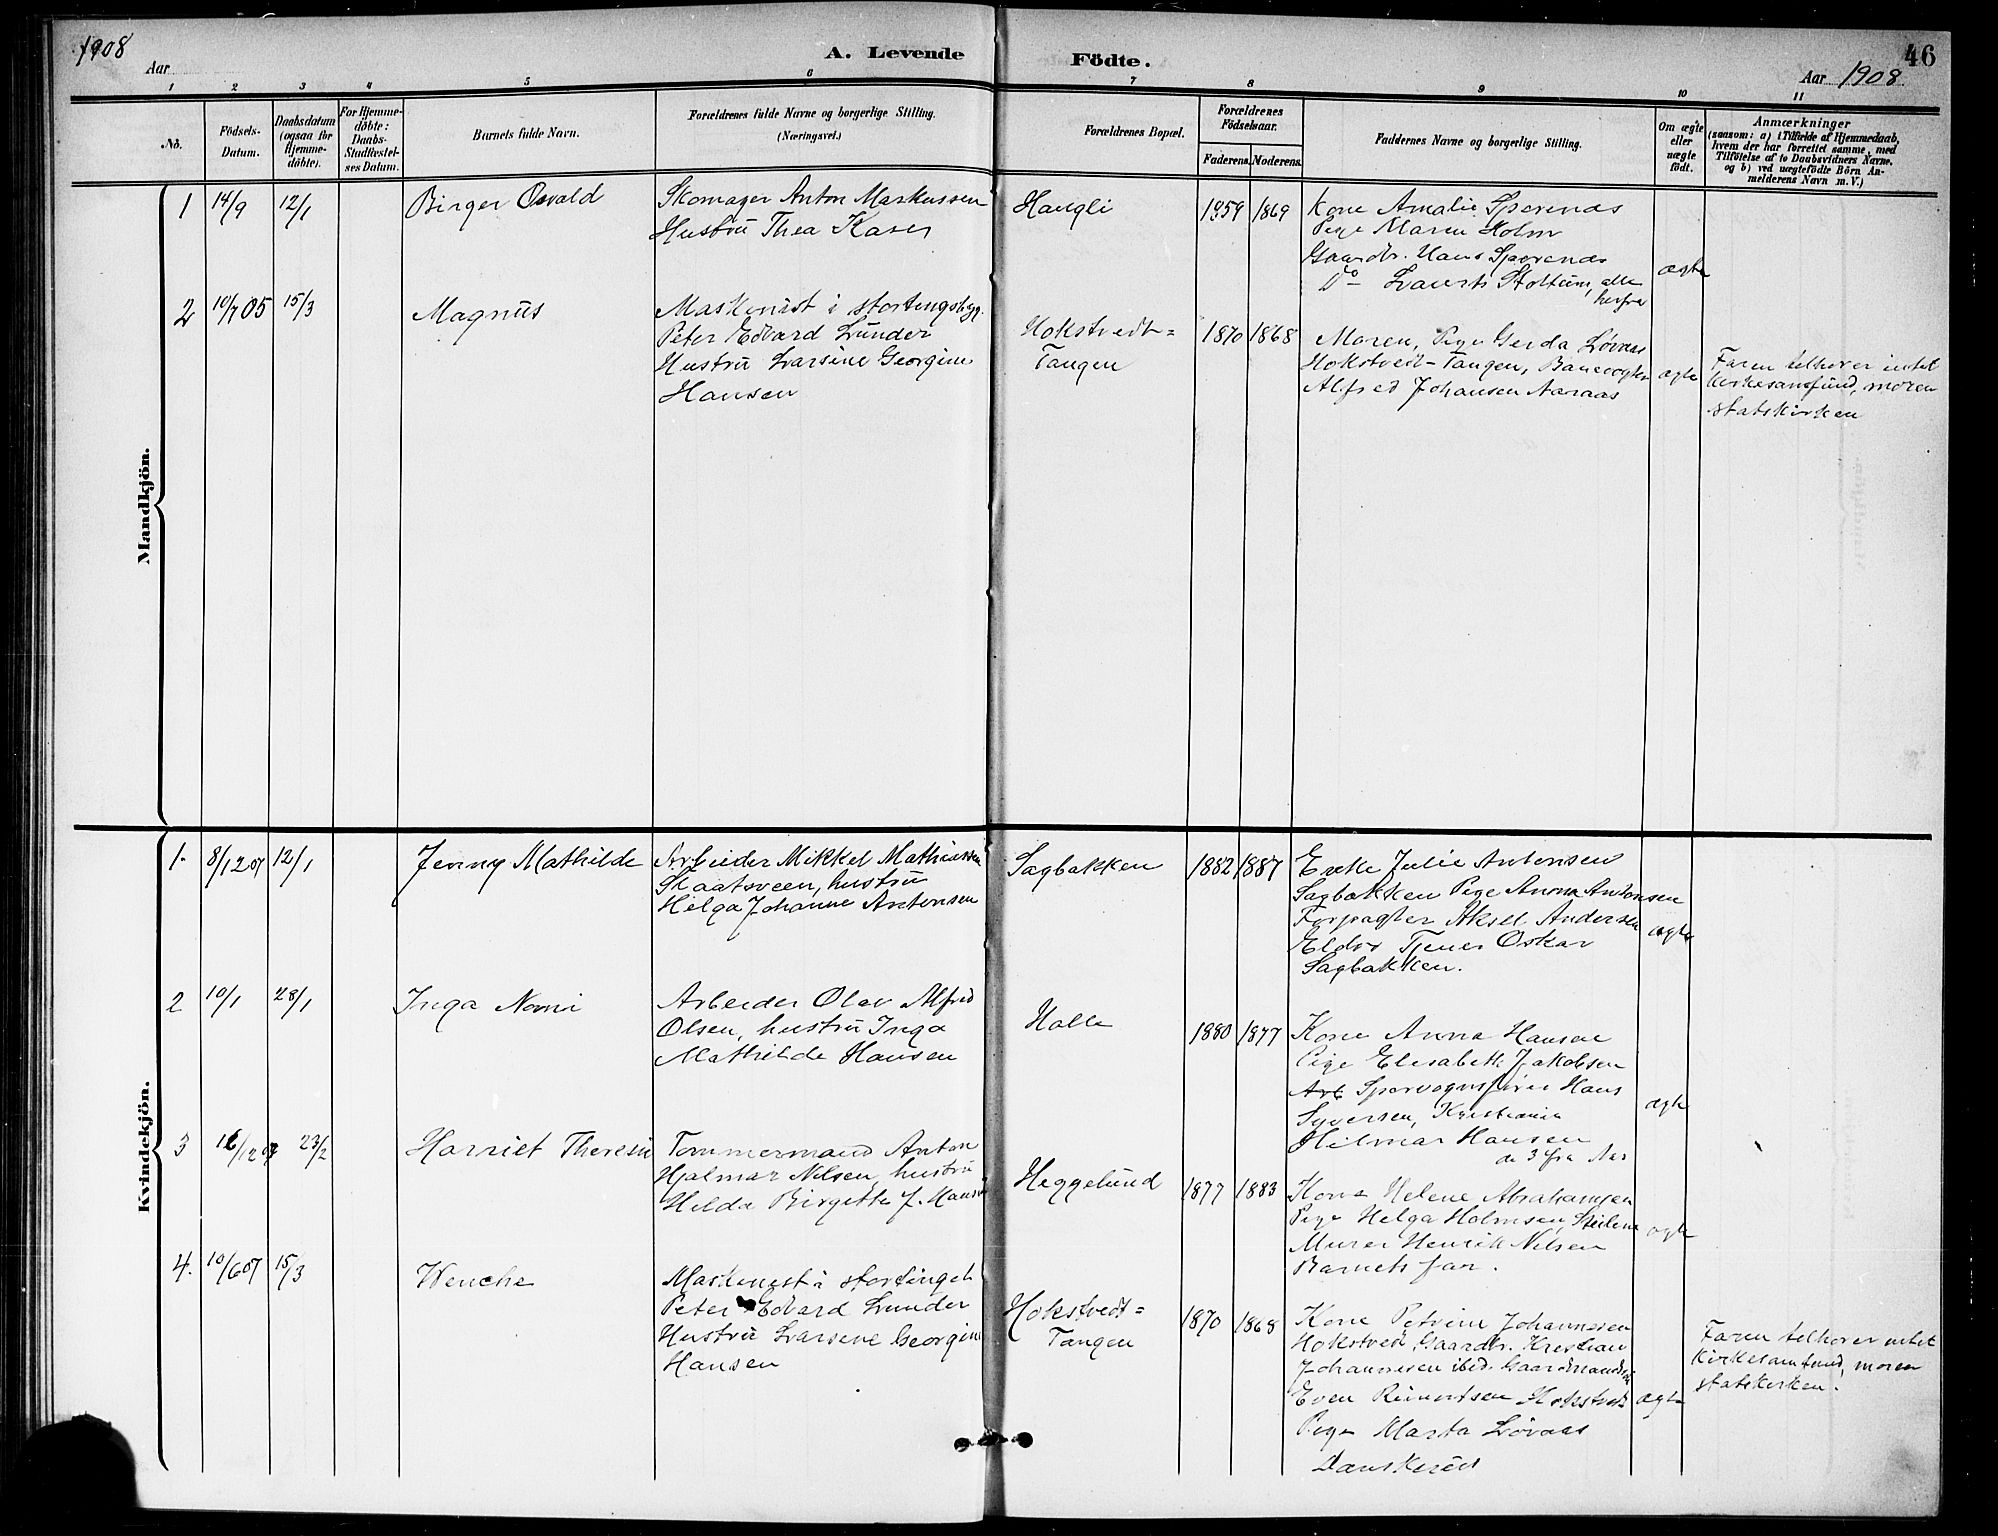 1908
Aar
A. Levende
Födte.
46
Aar 1908
1 2 3 4 5 6 7 8 9 10 11
No.
Födsels-
Datum.
Daabsdatum
(ogsaa for
Hjemme-
döbte).
For Hjemme-
döbte:
Daabs-
Stadfæstel-
ses Datum.
Barnets fulde Navn.
Forældrenes fulde Navne og borgerlige Stilling.
(Næringsvei.)
Forældrenes Bopæl.
Forældrenes
Födselsaar.
Faderens.
Moderens.
Faddernes Navne og borgerlige Stilling.
Om ægte
eller
uægte
födt.
Anmærkninger
(saasom: a) i Tilfælde af Hjemmedaab,
hvem der har forrettet samme, med
Tilföielse af to Daabsvidners Navne,
og b) ved uægtefödte Börn An-
melderens Navn m. V.)
Mandkjön.
1 14/9 12/1 Birger Osvald
Skomager Anton Markussen
Hustru Thea
Haugli
1859 1869
Kone Amalie Sperenas
Pige Maren Holm
Gaardbr. Hans Sperenas
Do Laurits Stoltum, alle
herfra
ægte
2 10/7 05 15/3 Magnus
Maskinist i stortingsbyg.
Peter Edvard Lunder
Hustru Larsine Georgine
Hansen
Hokstvedt=
Tangen
1870 1868
Moren, Pige Gerda Løvaas
Hokstvedt-Tangen, Banevogter
Alfred Johansen Aaraas
ægte
Faren tilhører intet
kirkesamfund, moren
statskirken
Kvindekjön.
1. 8/12 07 12/1 Jenny Mathilde
Arbeider Mikkel Mathiassen
Skaatsveen, hustru
Helga Johanne Antonsen
Sagbakken
1882 1887
Enke Julie Antonsen
Sagbakken Pige Anna Antonsen
Forpagter Aksel Andersen
Eldor Tjener Oskar
Sagbakken.
ægte
2 10/1 28/1 Inga Nomi
Arbeider Olav Alfred
Olsen, hustru Inga
Mathilde Hansen
Halle
1880 1877
Kone Anna Hansen
Pige Elisabeth Jakobsen
Arb Sporvognsfører Hans
Syversen, Kristiania
Hilmar Hansen
de 3 fra Aas
ægte
3 16/12 07 23/2 Harriet Theresie
Tømmermand Anton
Hjalmar Nilsen, hustru
Hilda Birgitte J. Hansen
Heggelund
1877 1883
Kone Helene Abrahamsen
Pige Helga Holmsen, Steilene
Murer Henrik Nilsen
Barnets far.
ægte
4. 10/6 07 15/3 Wenche
Maskinist i stortinget
Peter Edvard Lunder
Hustru Larsine Georgine
Hansen
Hokstvedt=
Tangen
1870 1868
Kone Petrine Johannesen
Hokstved, Gaardbr. Kristian
Johannesen ibid. Gaardmandssøn
Even Reinertsen Hokstvedt
Pige Marta Løvaas
Danskerud
ægte
Faren tilhører intet
kirkesamfund, moren
statskirken.